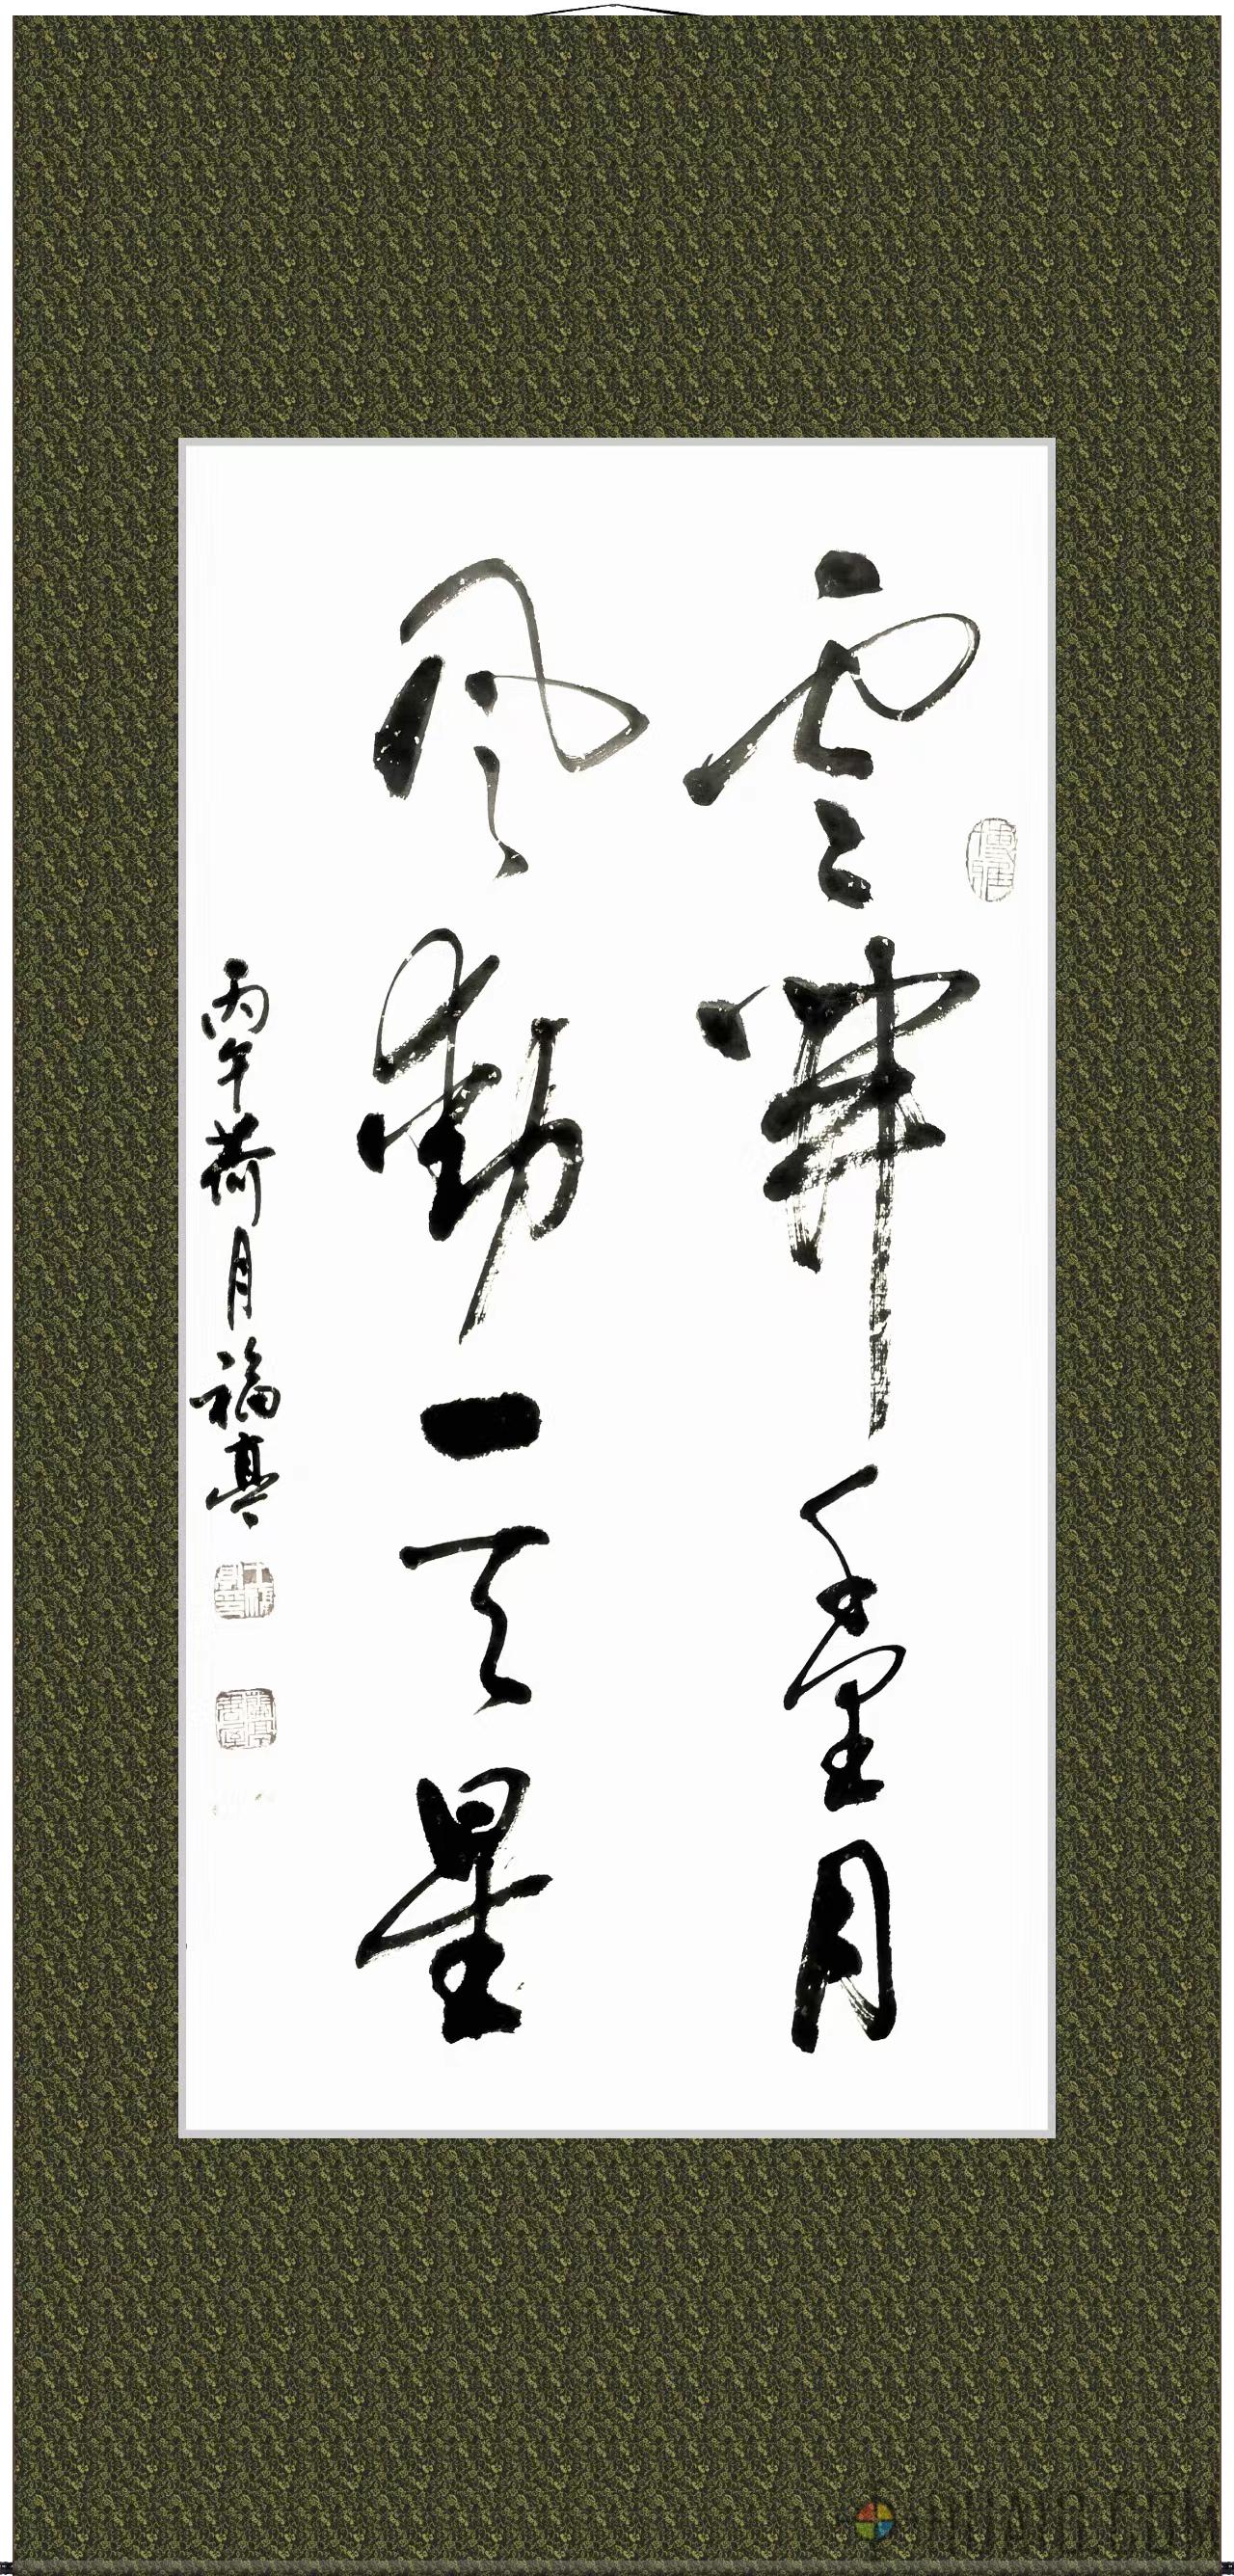 雲開千里月
風動一天星
丙午荷月福亭